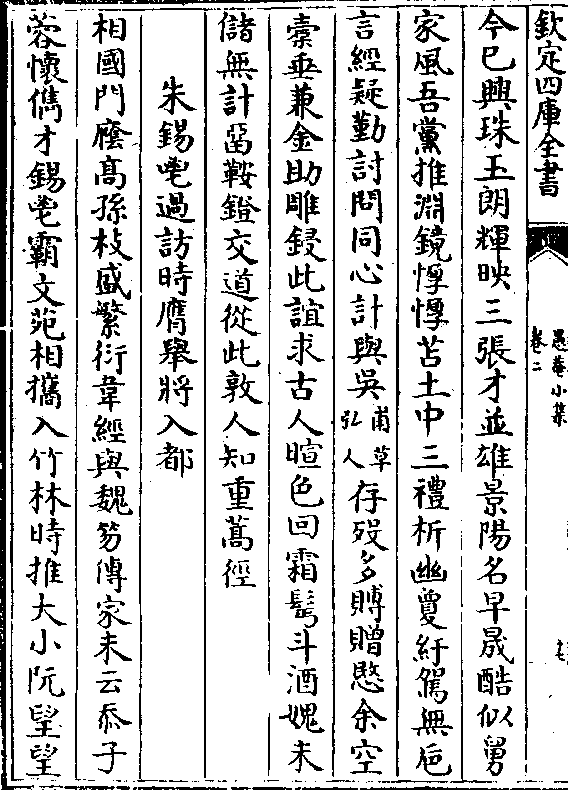 欽定四庫全書
愚菴小集
卷二
今已興珠玉朗輝映三張才並雄景陽名早晟酷似舅
家風吾黨推淵鏡惸惸苫土中三禮析幽夐紆駕無卮
言經疑勤討問同心計與吳甫草弘人存殁多賻贈愍余空
橐垂兼金助雕鋟此誼求古人暄色回霜髩斗酒媿未
儲無計畱鞍鐙交道從此敦人知重蒿徑
朱錫鬯過訪時膺舉將入都
相國門廕高孫枝盛繁衍韋經與魏笏傳家未云忝子
蓉懷儁才錫鬯霸文苑相攜入竹林時推大小阮望望